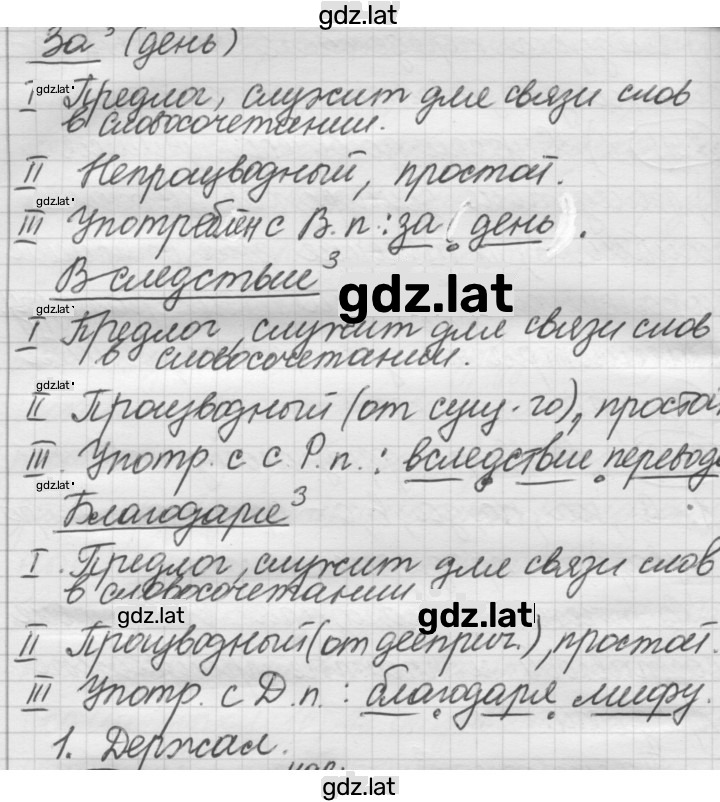 gdz.lat
За³ (день)
gdz.lat
I Предлог, служит для связи слов
в словосочетании.
II Непроизводный, простой.
gdz.lat
III Употреблён с В.п.: за (день).
Вследствие³
gdz.lat
gdz.lat
I Предлог, служит для связи слов
в словосочетании.
gdz.lat
II Производный (от сущ-го), простой
III. Употр. с с Р.п.: вследствие перевода
gdz.lat
Благодаря³
I. Предлог, служит для связи слов
в словосочетании
gdz.lat gdz.lat
II Производный (от дееприч.), простой.
III Употр. с Д.п.: благодаря мифу.
1. Держал.
gdz.lat